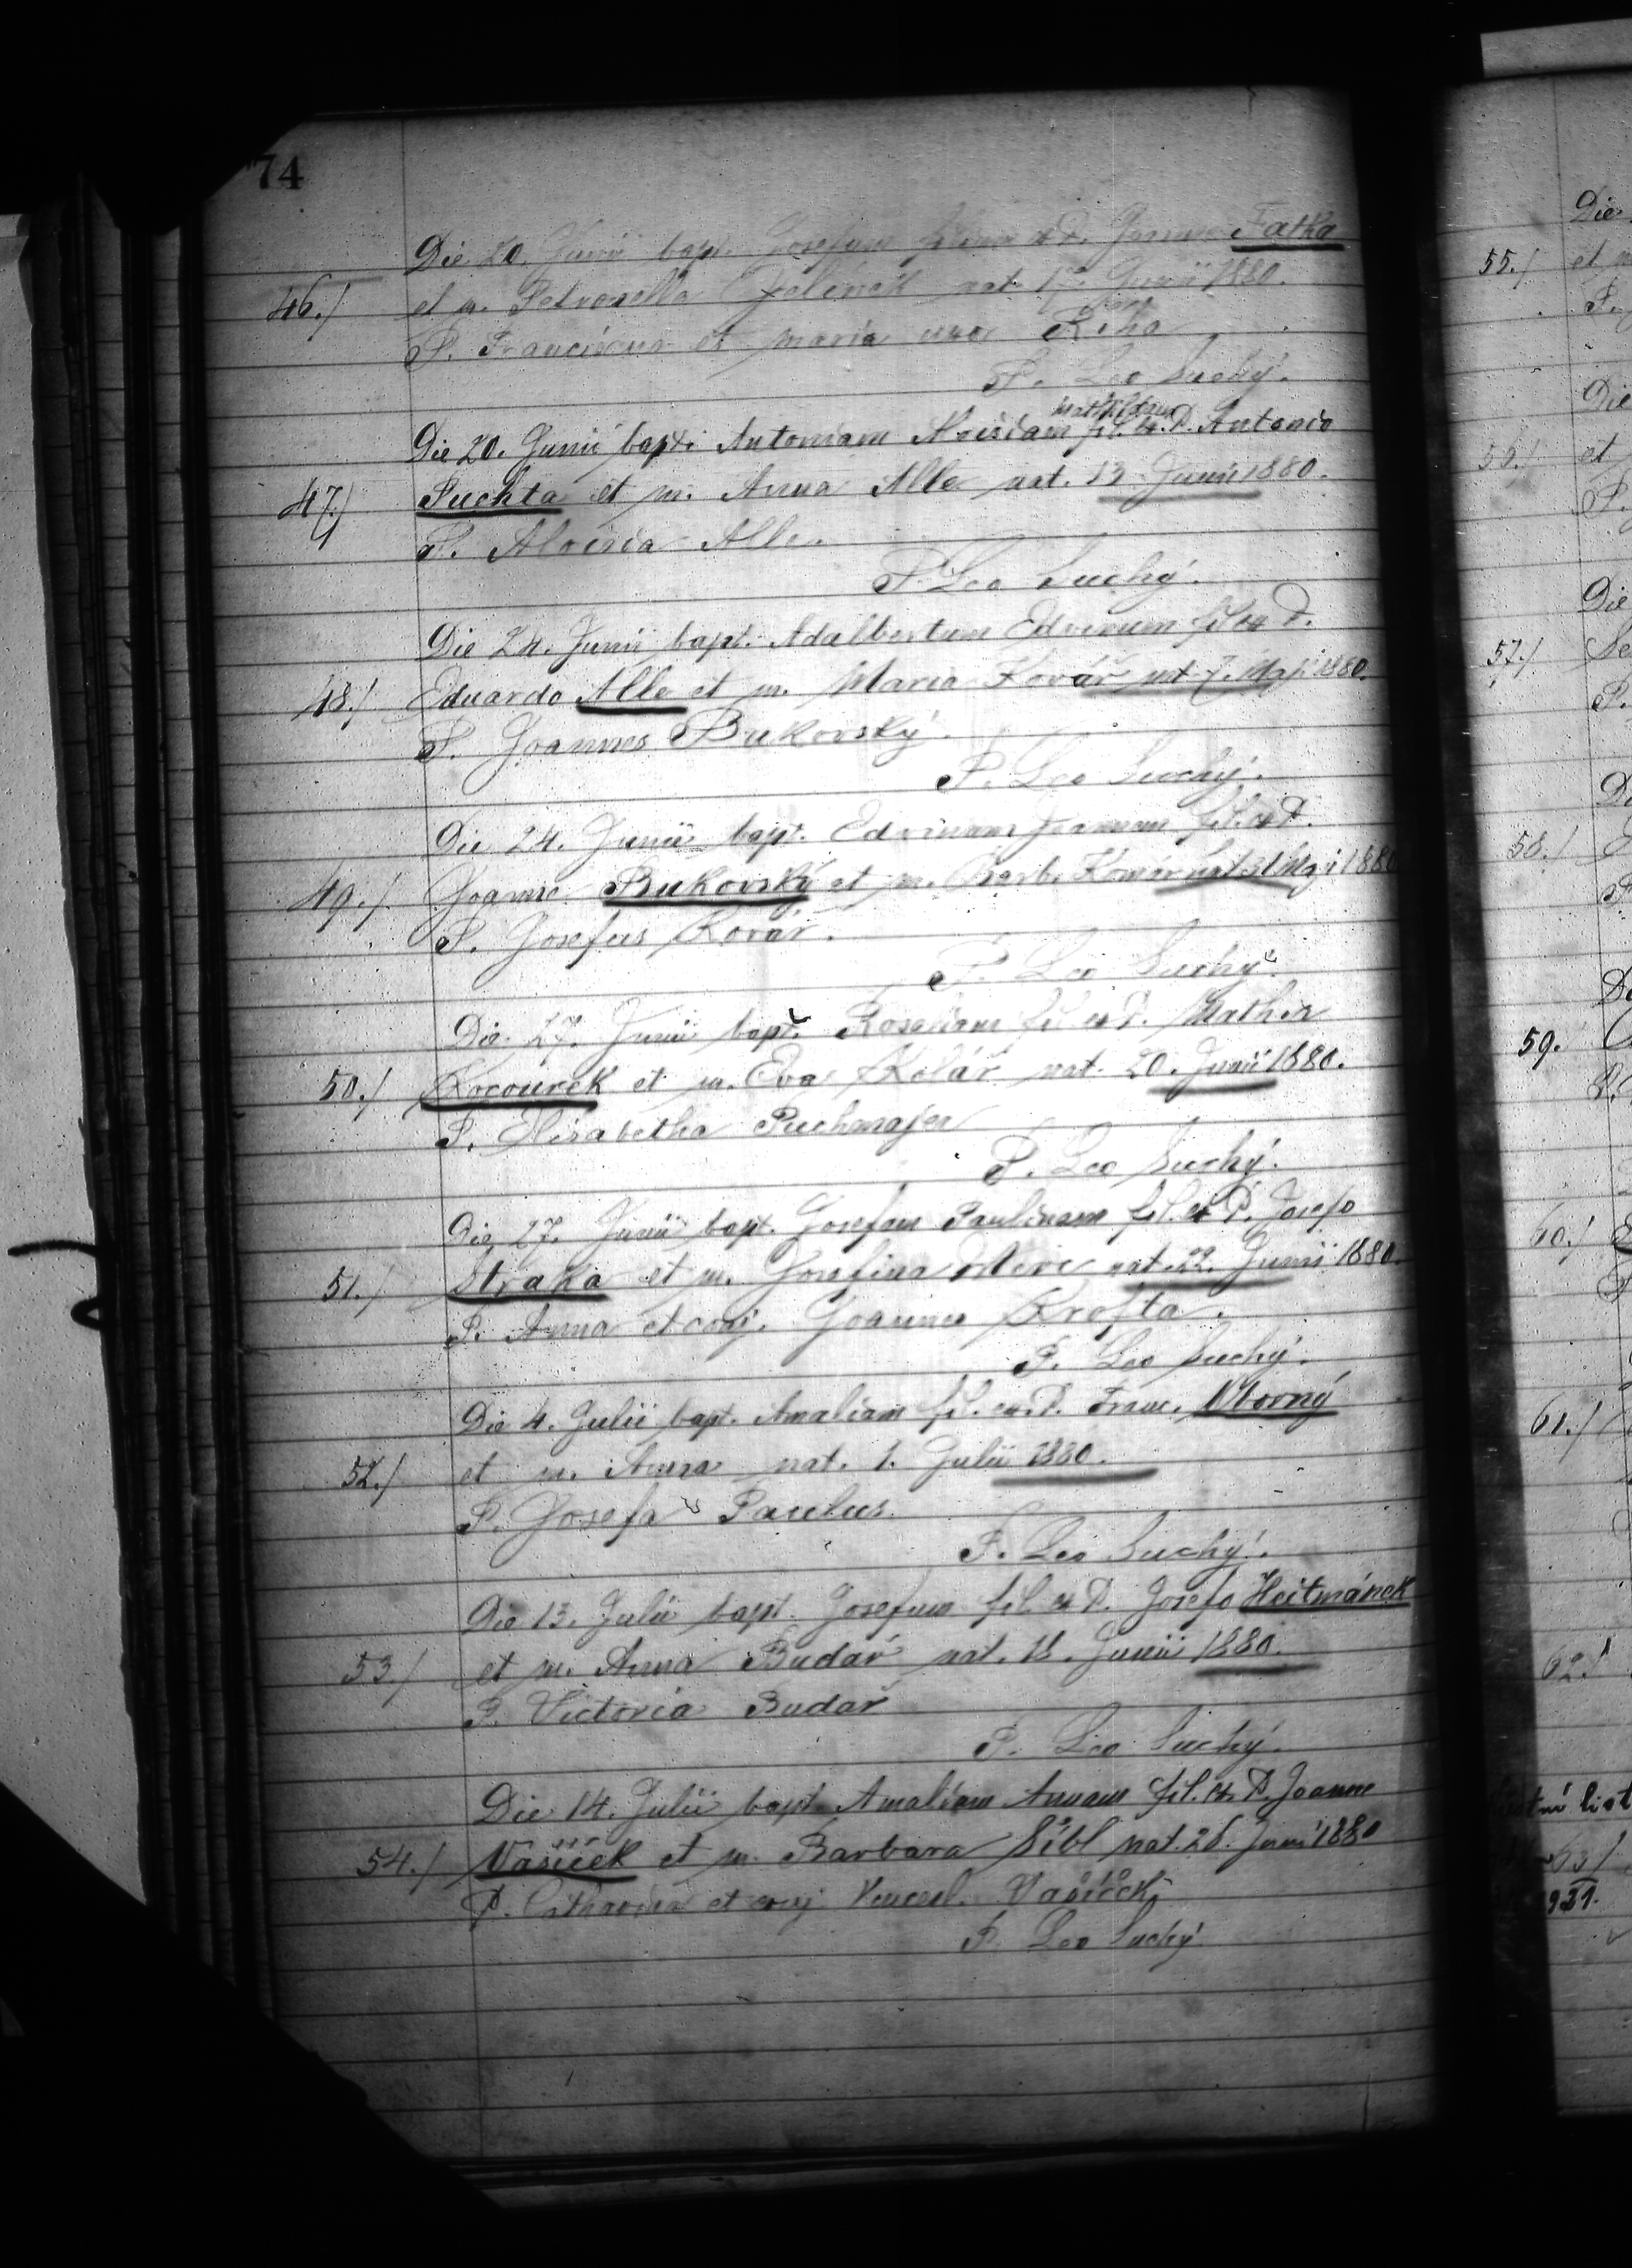 74
Die 20. Junii bapt. Josefum filium ex P. Fatka
46./ et m. Petronella Jelinek nat. 17. Junii 1880.
P. Franciscus et Maria uxor Řiha
P. Leo Suchý.
Die 20. Junii bapt. Antoniam Aloisiam Mathildam fil. ex P. Antonio
47./ Puchta et m. Anna Alle nat. 13. Junii 1880.
P. Aloisia Alle.
P. Leo Suchý.
Die 24. Junii bapt. Adalbertum Edvinum fil. ex P.
48./ Eduardo Alle et m. Maria Kovář nat. 7. Maji 1880.
P. Joannes Bukovský.
P. Leo Suchý.
Die 24. Junii bapt. Edvinam Joannam fil. ex P.
49./ Joanne Bukovský et m. Barb. nat. 31 Maji 1880
P. Josefus Kovář.
P. Leo Suchý.
Die 27. Junii bapt. Rosaliam fil. ex P. Mathia
50./ Kocourek et m. Eva Kolář nat. 20. Junii 1880.
P. Elisabetha Puchmajer
P. Leo Suchý.
Die 27. Junii bapt. Josefam Paulinam fil. ex P. Josefo
51./ Straka et m. Josefina nat. 22. Junii 1880.
P. Anna et conj. Joannes Krofta.
P. Leo Suchý.
Die 4. Julii bapt. Amaliam fil. ex P. Franc.
52./ et m. Anna nat. 1. Julii 1880.
P. Josefa Paulus.
P. Leo Suchý.
Die 13. Julii bapt. Josefum fil. ex P. Josefo Heitmánek
53./ et m. Anna Budař nat. 18. Junii 1880.
P. Victoria Budař
P. Leo Suchý.
Die 14. Julii bapt. Amaliam Annam fil. ex P. Joanne
54./ Vašíček et m. Barbara Šíbl nat. 26. Junii 1880
P. Catharina et conj Vencesl. Vašíček
P. Leo Suchý
Die
55./ et
P.
Die
56./ et
P.
Die
57./
P.
58./
59.
60./
61./
62./
list
63/
1931.